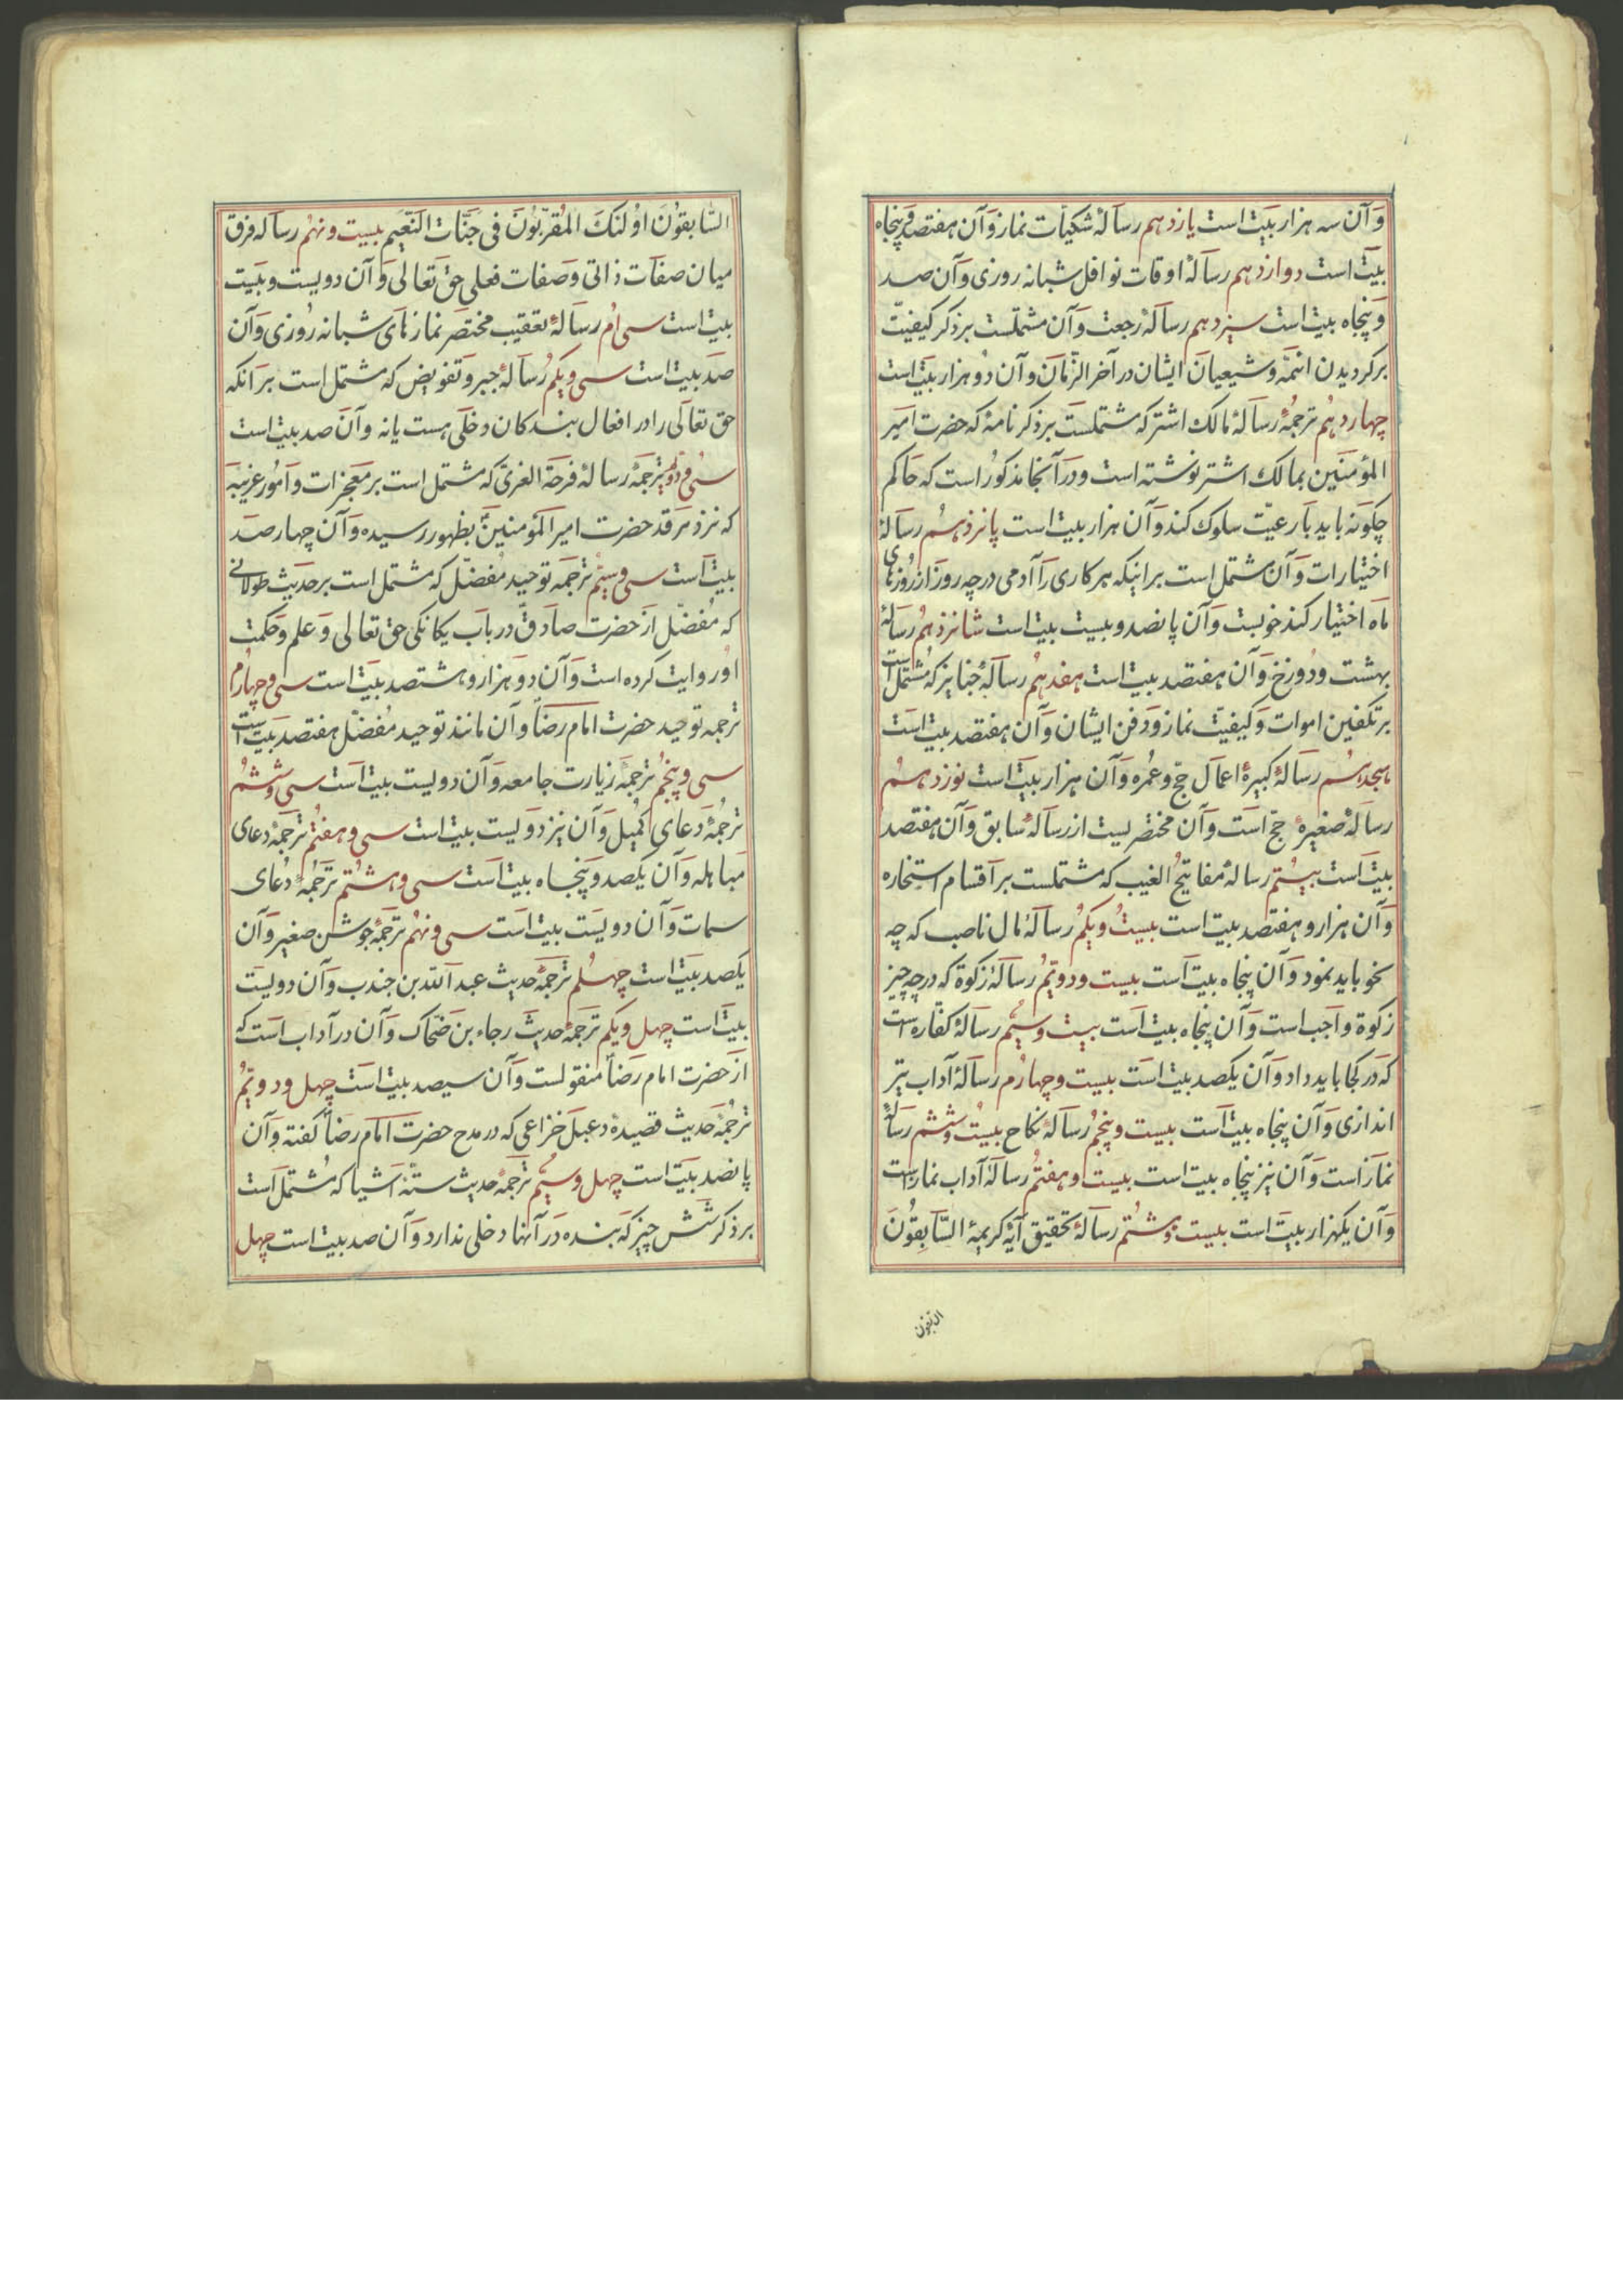 وآن سه هزار بیت است یازدهم رسالهٔ شکیات نماز وآن هفتصد وپنجاه
بیت است دوازدهم رسالهٔ اوقات نوافل شبانه روزی وآن صد
وپنجاه بیت است سیزدهم رسالهٔ رجعت وآن مشتملست بر ذکر کیفیّت
برکردیدن ائمّه وشیعیان ایشان در آخر الزّمان وآن دو هزار بیت است
چهاردهم ترجمهٔ رسالهٔ مالک اشتر که مشتملست بر ذکر نامهٔ که حضرت امیر
المؤمنین بمالک اشتر نوشته است ودر آنجا مذکور است که حاکم
چکونه باید با رعیّت سلوک کند وآن هزار بیت است پانزدهم رسالهٔ
اختیارات وآن مشتمل است بر اینکه هر کاری را آدمی در چه روز از روزهای
ماه اختیار کند خوبست وآن پانصد وبیست بیت است شانزدهم رسالهٔ
بهشت ودوزخ وآن هفتصد بیت است هفدهم رسالهٔ جنایز که مشتمل است
بر تکفین اموات وکیفیّت نماز ودفن ایشان وآن هفتصد بیت است
هیجدهم رسالهٔ کبیرهٔ اعمال حج وعمره وآن هزار بیت است نوزدهم
رسالهٔ صغیرهٔ حج است وآن مختصریست از رسالهٔ سابق وآن هفتصد
بیت است بیستم رسالهٔ مفاتیح الغیب که مشتملست بر اقسام استخاره
وآن هزار وهفتصد بیت است بیست ویکم رسالهٔ مال ناصب که چه
نحو باید نمود وآن پنجاه بیت است بیست ودویّم رسالهٔ زکوة که در چه چیز
زکوة واجب است وآن پنجاه بیت است بیست وسیّم رسالهٔ کفّاره است
که در کجا باید داد وآن یکصد بیت است بیست وچهارم رسالهٔ آداب تیر
اندازی وآن پنجاه بیت است بیست وپنجم رسالهٔ نکاح بیست وششم رسالهٔ
نماز است وآن نیز پنجاه بیت است بیست وهفتم رسالهٔ آداب نماز است
وآن یکهزار بیت است بیست وهشتم رسالهٔ تحقیق آیهٔ کریمهٔ السّابقون
السّابقون اولئک المقرّبون فی جنّات النّعیم بیست ونهم رساله فرق
میان صفات ذاتی وصفات فعلی حق تعالی وآن دویست وبیست
بیت است سی ام رسالهٔ تعقیب مختصر نمازهای شبانه روزی وآن
صد بیت است سی ویکم رسالهٔ جبر وتفویض که مشتمل است بر انکه
حق تعالی را در افعال بندکان دخلی هست یا نه وآن صد بیت است
سی ودویّم ترجمهٔ رسالهٔ فرحة الغریّ که مشتمل است بر معجزات وامور غریبه
که نزد مرقد حضرت امیر المؤمنین بظهور رسیده وآن چهار صد
بیت است سی وسیّم ترجمه توحید مفضّل که مشتمل است بر حدیث طولانی
که مفضّل از حضرت صادق در باب یکانکی حق تعالی وعلم وحکمت
او روایت کرده است وآن دو هزار وهشتصد بیت است سی وچهارم
ترجمه توحید حضرت امام رضا وآن مانند توحید مفضّل هفتصد بیت است
سی وپنجم ترجمهٔ زیارت جامعه وآن دویست بیت است سی وششم
ترجمهٔ دعای کمیل وآن نیز دویست بیت است سی وهفتم ترجمهٔ دعای
مباهله وآن یکصد وپنجاه بیت است سی وهشتم ترجمهٔ دعای
سمات وآن دویست بیت است سی ونهم ترجمهٔ جوشن صغیر وآن
یکصد بیت است چهلم ترجمهٔ حدیث عبد الله بن جندب وآن دویست
بیت است چهل ویکم ترجمهٔ حدیث رجاء بن ضحّاک وآن در آداب است که
از حضرت امام رضا منقولست وآن سیصد بیت است چهل ودویّم
ترجمهٔ حدیث قصیدهٔ دعبل خزاعی که در مدح حضرت امام رضا کفته وآن
پانصد بیت است چهل وسیّم ترجمهٔ حدیث ستّهٔ اشیا که مشتمل است
بر ذکر شش چیز که بنده در آنها دخلی ندارد وآن صد بیت است چهل